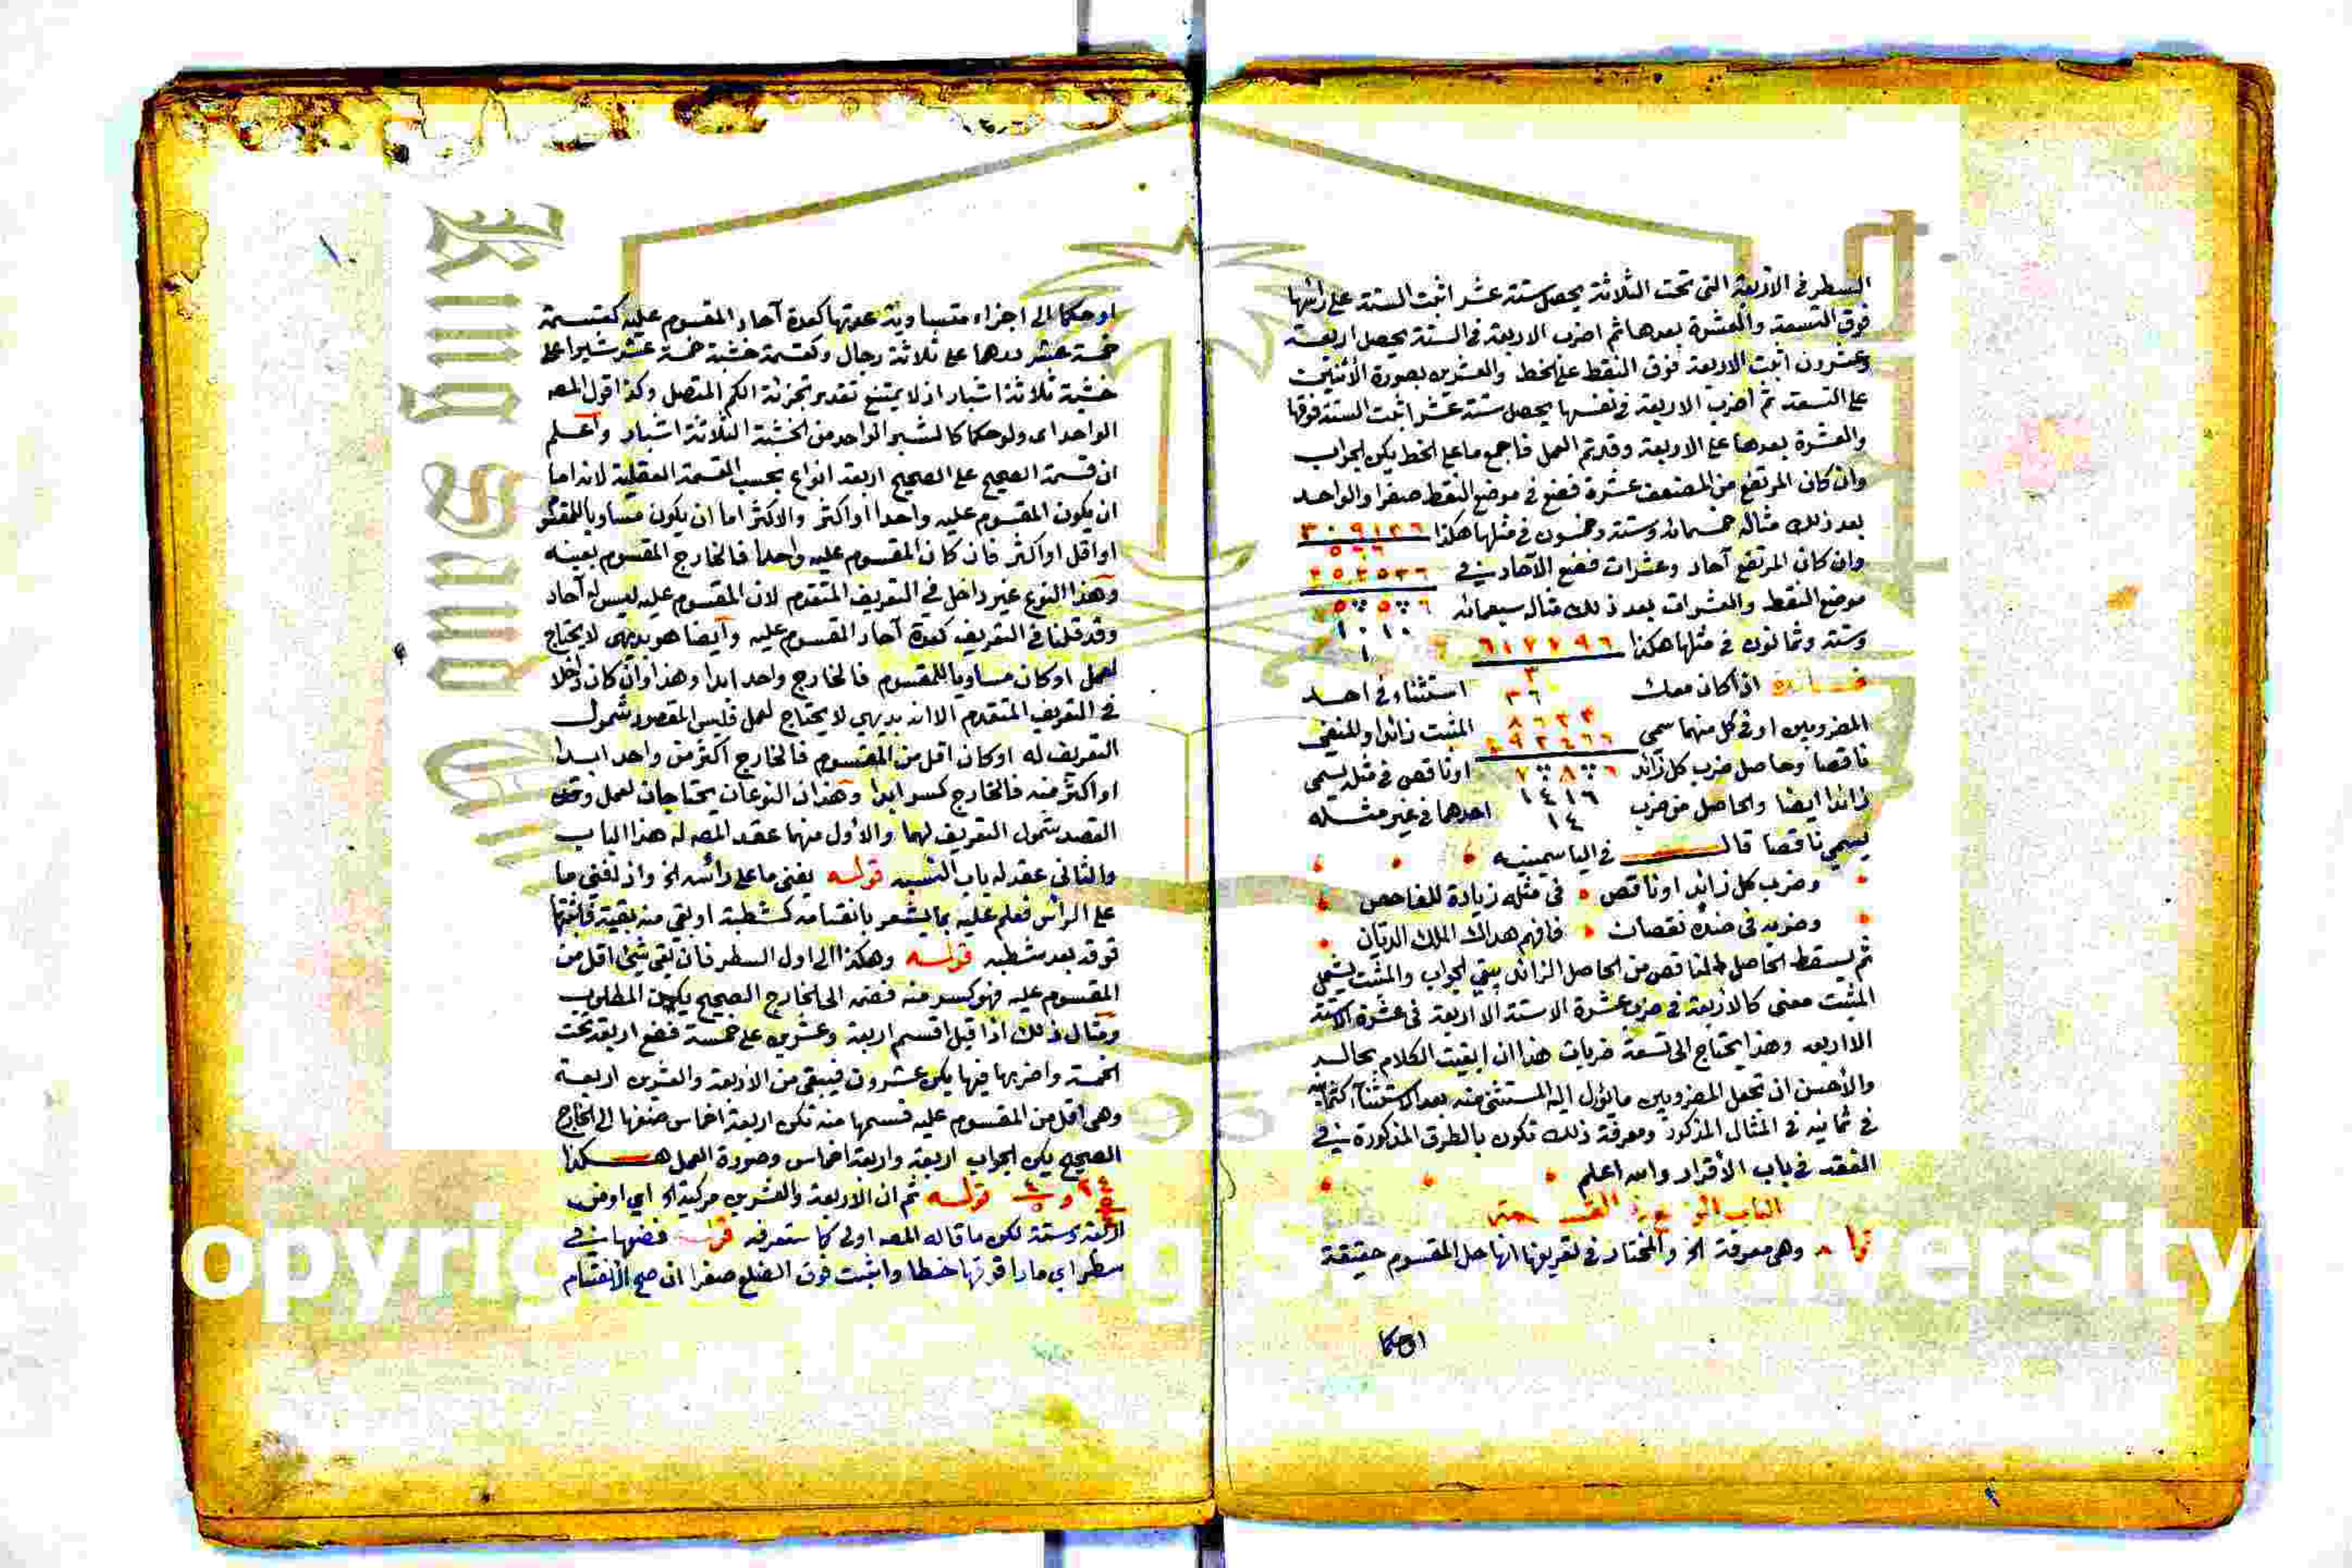 السطر في الاربعة التي تحت الثلاثة يحصل ستة عشر اثبت الستة على رأسها
فوق التسعة والعشرة بعدها ثم اضرب الاربعة في الستة يحصل اربعة
وعشرون اثبت الاربعة فوق النقط على الخط والعشرين بصورة الاثنين
على التسعة ثم اضرب الاربعة في نفسها يحصل ستة عشر اثبت الستة فوقها
والعشرة بعدها على الاربعة وقد تم العمل فاجمع ما على الخط يكن الجواب
وان كان المرتفع من المضعف عشرة فضع في موضع النقط صفرا والواحد
بعد ذلك مثاله خمسمائة وستة وخمسون في مثلها هكذا ٣٠٩١٣٦
وان كان المرتفع آحاد وعشرات فضع الآحاد في
موضع النقط والعشرات بعد ذلك مثاله سبعمائة
وستة وثمانون في مثلها هكذا ٦١٧٧٩٦
اذا كان معك استثناء في احد
المضروبين او في كل منهما سمي المثبت زائدا والمنفي
ناقصا وحاصل ضرب كل زائد او ناقص في مثله يسمى
زائدا ايضا والحاصل من ضرب احدهما في غير مثله
يسمي ناقصا قال في الياسمينيه
وضرب كل زائد او ناقص في مثله زيادة للفاحص
وضربه في ضده نقصان فافهم هداك الملك الديان
ثم يسقط الحاصل الناقص من الحاصل الزائد يبقي الجواب والمثبت يسمى
المثبت معنى كالاربعة في ضرب عشرة الا ستة الا اربعة في عشرة الا ستة
الا اربعه وهذا يحتاج الى تسعة ضربات هذا ان ابقيت الكلام بحاله
والأحسن ان تجعل المضروبين ما يؤول اليه المستثنى منه بعد الاستثناء كثمانية
في ثمانية في المثال المذكور ومعرفة ذلك تكون بالطرق المذكورة في
الفقه في باب الأقرار والله اعلم
الباب في القسمة
وهي معرفة الخ والمختار في تعريفها انها حل المقسوم حقيقة
او حكما
او حكما الى اجزاء متساوية عدتها كعدة آحاد المقسوم عليه كقسمة
خمسة عشر درهما على ثلاثة رجال وكقسمة خشبة خمسة عشر شبرا على
خشبة ثلاثة اشبار اذ لا يمتنع تقدير تجزئة الكم المتصل وكذا قول المصه
الواحد اى ولو حكما كالشبر الواحد من الخشبة الثلاثة اشبار واعلم
ان قسمة الصحيح على الصحيح اربعة انواع بحسب القسمة العقلية لانه اما
ان يكون المقسوم عليه واحدا او اكثر والاكثر اما ان يكون مساويا للمقسوم
او اقل او اكثر فان كان المقسوم عليه واحدا فالخارج المقسوم بعينه
وهذا النوع غير داخل في التعريف المتقدم لان المقسوم عليه ليس له آحاد
وقد قلنا في التعريف كعدة آحاد المقسوم عليه وايضا هو بديهى لا يحتاج
لعمل او كان مساويا للمقسوم فالخارج واحد ابدا وهذا وان كان داخلا
في التعريف المتقدم الا انه بديهي لا يحتاج لعمل فليس المقصود شمول
التعريف له او كان اقل من المقسوم فالخارج اكثر من واحد ابدا
او اكثر منه فالخارج كسر ابدا وهذان النوعان يحتاجان لعمل
القصد شمول التعريف لهما والاول منهما عقد المصه له هذا الباب
والثانى عقد له باب التسميه قوله يفنى ما على رأسه الخ واذ لفنى ما
على الرأس فعلم عليه بما يشعر بانقسامه كشطبة او بقى منه بقية فاثبتها
فوقه بعد شطبه قوله وهكذا الى اول السطر فان بقى شئ اقل من
المقسوم عليه فهو كسر منه فضمه الى الخارج الصحيح يكن المطلوب
ومثال ذلك اذا قيل اقسم اربعة وعشرين على خمسة فضع اربعة تحت
الخمسة واضربها فيها يكن عشرون فيبقى من الاربعة والعشرين اربعة
وهى اقل من المقسوم عليه فسمها منه تكن اربعة اخماس ضفها الى الخارج
الصحيح يكن الجواب اربعة واربعة اخماس وصورة العمل هكذا
قوله ثم ان الاربعة والعشرين مركبة الخ اي او من
اربعة وستة لكن ما قاله المصه اولى كما ستعرفه قوله فضعها في
سطر اي مارا فوقها خطا واثبت فوق الضلع صفرا ان صح الانقسام